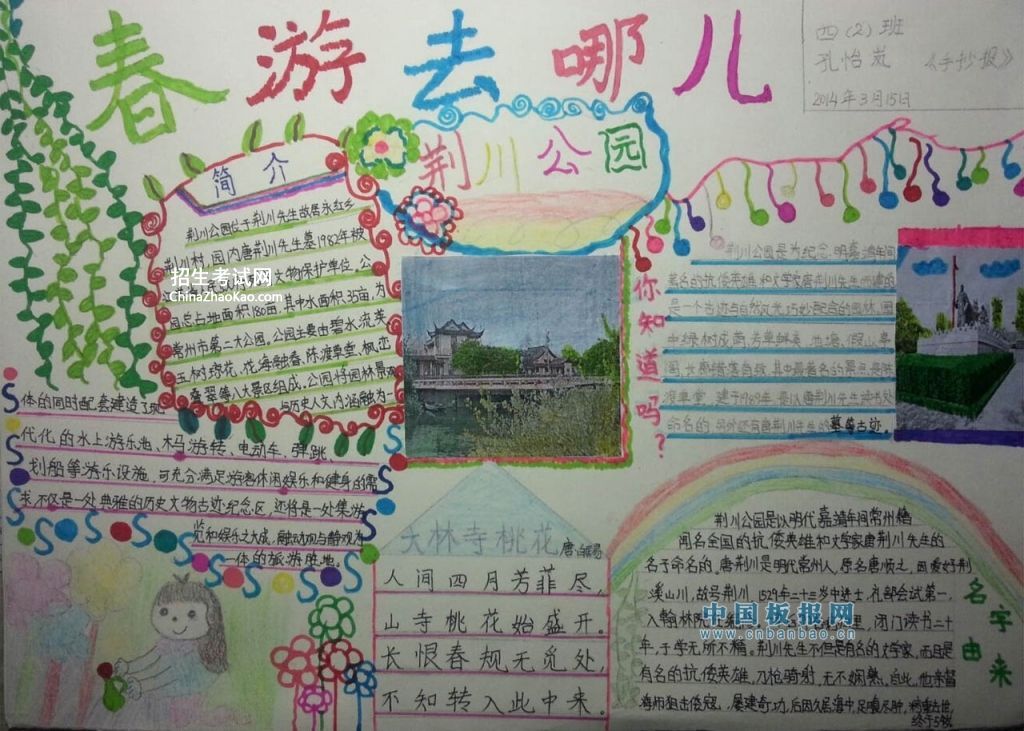 春游去哪儿
四(2)班
孔怡岚
《手抄报》
2014年3月15日
荆川公园
简介
荆川公园位于荆川先生故居永红乡
荆川村,园内唐荆川先生墓1982年被
文物保护单位。公
园总占地面积180亩,其中水面积35亩,为
常州市第二大公园。公园主要由碧水流芙
玉树琼花、花海融春、陈渡草堂、枫峦
叠翠等八大景区组成。公园将园林景观
与历史人文内涵融为一
体的同时配套建造了现
代化的水上游乐池、木马游转、电动车、弹跳、
划船等游乐设施,可充分满足游客休闲娱乐和健身的需
求,不仅是一处典雅的历史文物古迹纪念区,还将是一处集游
览和娱乐之大成,融动观与静观为
一体的旅游胜地。
招生考试网
ChinaZhaoKao.com
你知道吗?
荆川公园是为纪念明嘉靖年间
著名的抗倭英雄和文学家唐荆川先生所建的
是一个古迹与自然风光巧妙配合的园林,园
中绿树成荫,芳草鲜美,池塘、假山、亭
阁、长廊错落有致,其中最著名的景点是陈
渡草堂,建于1989年,是以唐荆川先生读书处
命名的,另外还有唐荆川先生的墓等古迹。
大林寺桃花
唐·白居易
人间四月芳菲尽,
山寺桃花始盛开。
长恨春规无觅处,
不知转入此中来。
名字由来
荆川公园是以明代嘉靖年间常州籍
闻名全国的抗倭英雄和文学家唐荆川先生的
名子命名的。唐荆川是明代常州人,原名唐顺之,因爱好荆
溪山川,故号荆川,1529年二十三岁中进士,礼部会试第一,
入翰林院 里,闭门读书二十
年,于学无所不精。荆川先生不但是有名的文学家,而且是
有名的抗倭英雄,刀枪骑射,无不娴熟。为此,他亲督
海师狙击倭寇,屡建奇功,后因久居海中,足腹尽肿,
终于5
中国板报网
www.cnbanbao.cn